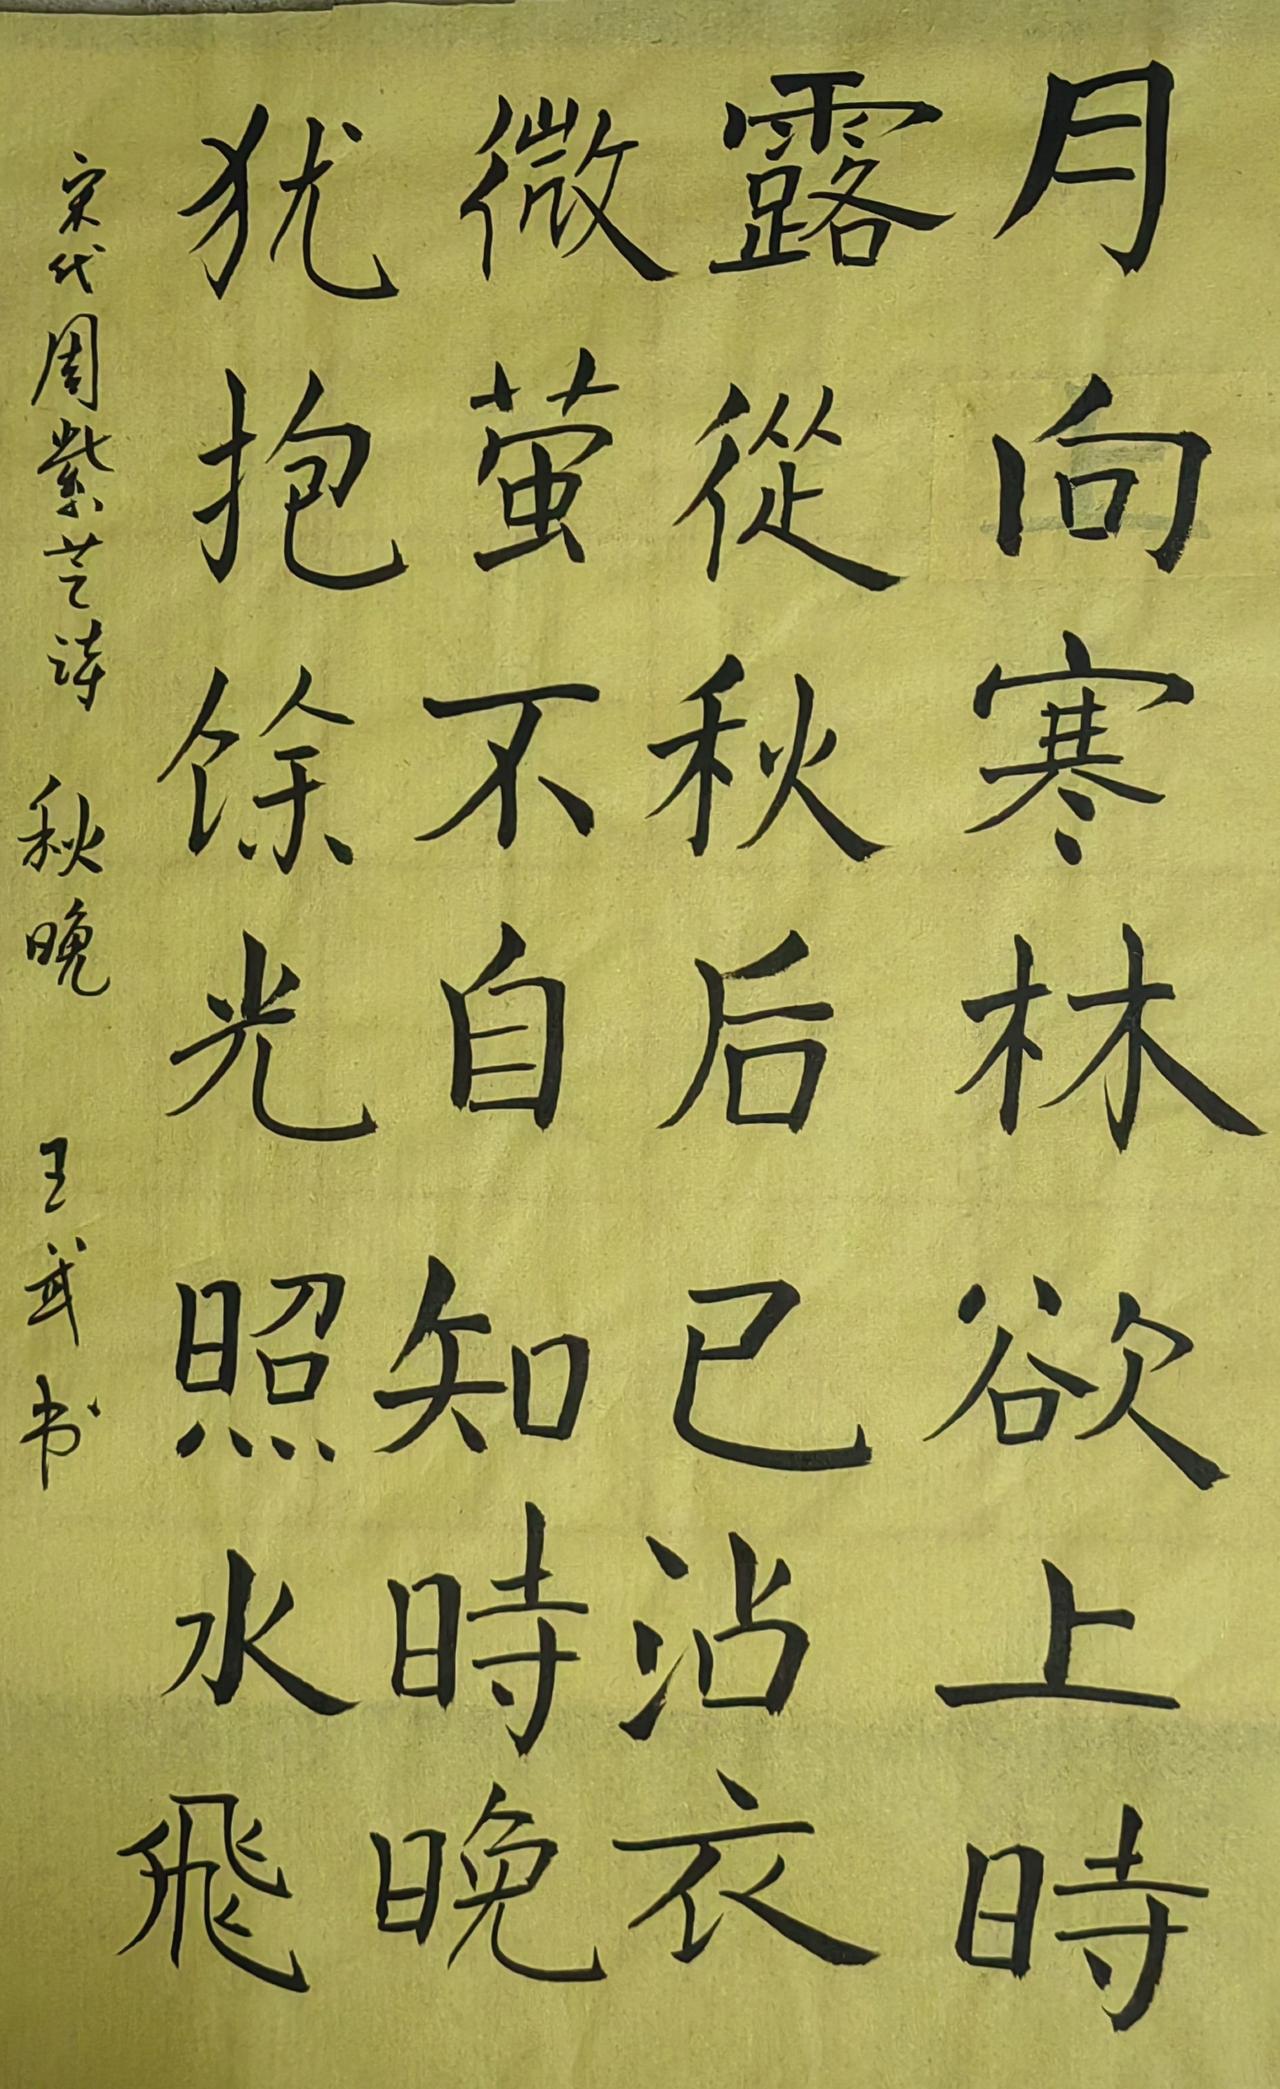 月向寒林欲上時
露從秋后已沾衣
微萤不自知時晚
犹抱馀光照水飛
宋代周紫芝诗 秋晚 王武书